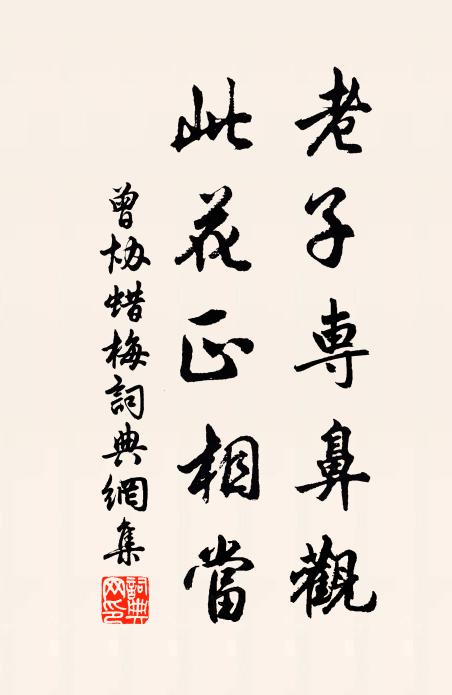 老子専鼻觀
此花正相當
曾协蜡梅詞典網集
詞典網印